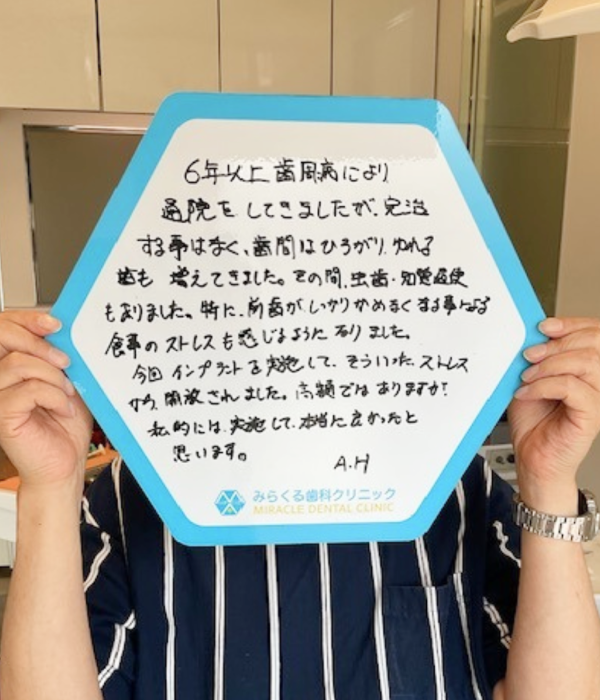 6年以上歯周病により
通院をしてきましたが、完治
する事はなく、歯間はひろがり、ゆれる
歯も 増えてきました。その間、虫歯・知覚過使
もありました。特に、前歯がしっかりかめなくする事による
食事のストレスも感じるようになりました。
今回インプラントを実施して、そういったストレス
から開放されました。高額ではありますが!
私的には、実施して、本当に良かったと
思います。
A.H
みらくる歯科クリニック
MIRACLE DENTAL CLINIC